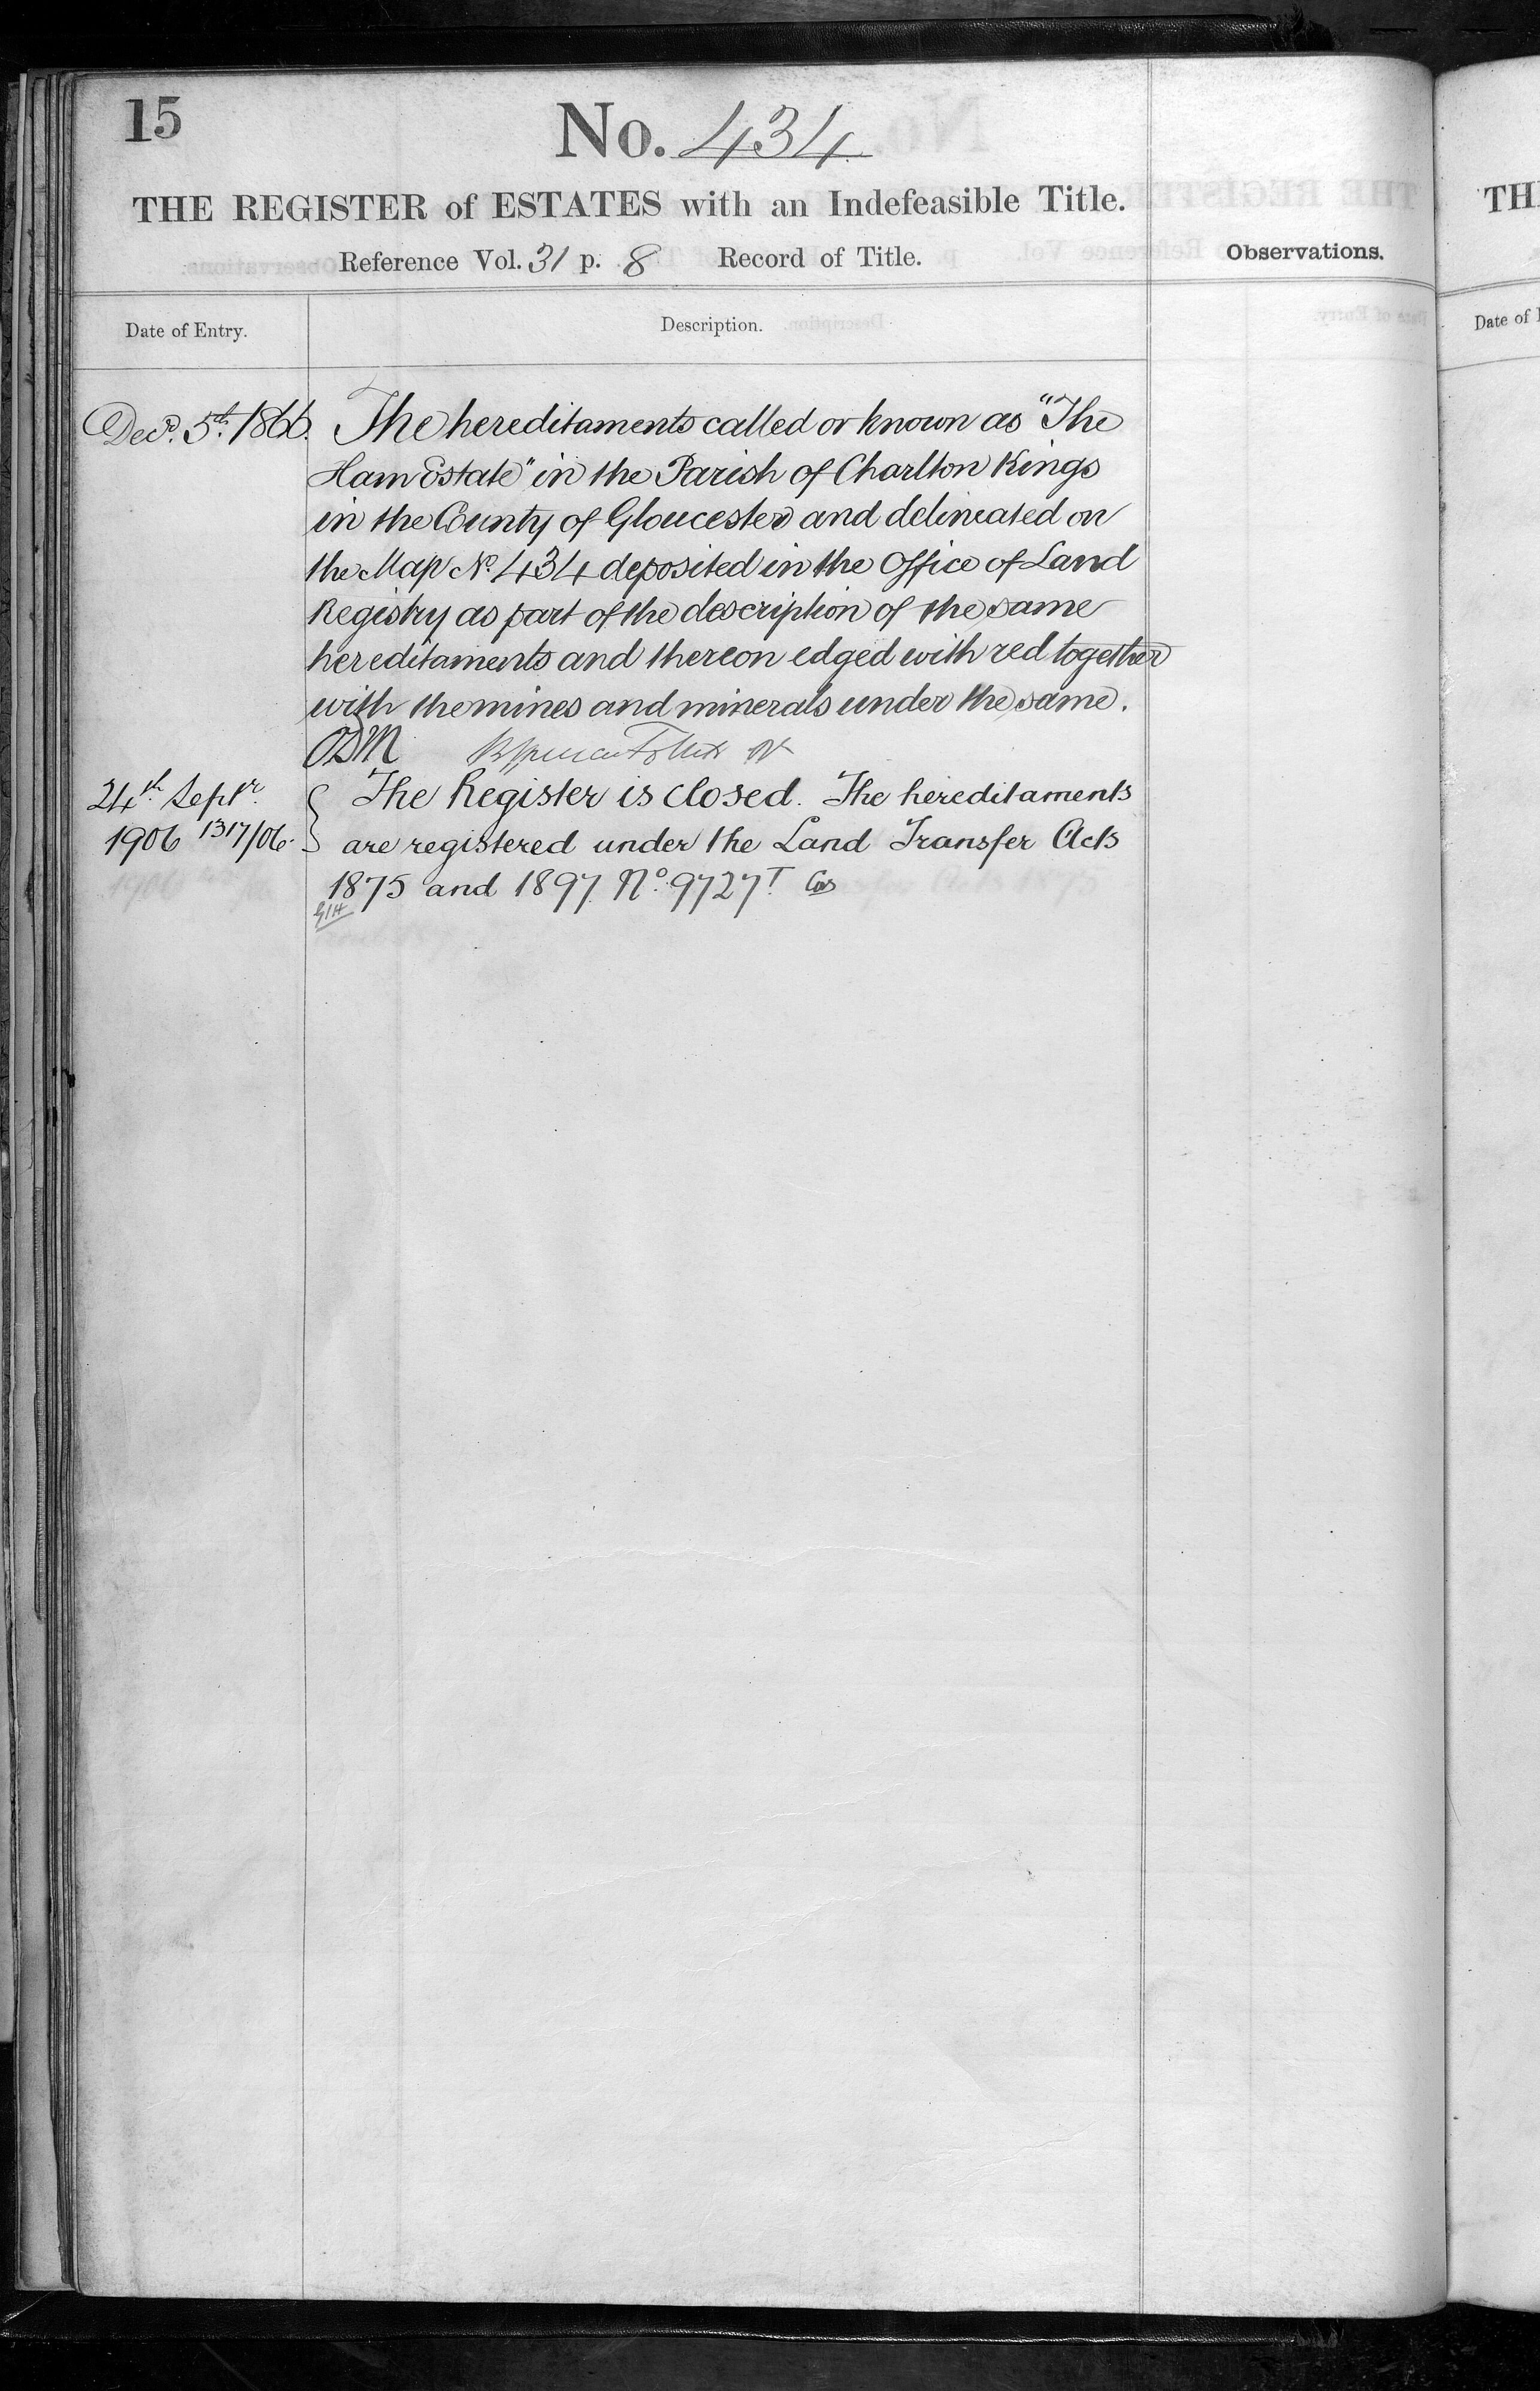 15
No. 434
THE REGISTER of ESTATES with an Indefeasible Title.
Reference Vol. 31 p. 8 Record of Title.
Observations.
Date of Entry.
Description.
Decr. 5th. 1866.
The hereditaments called or known as "The
Ham Estate" in the Parish of Charlton Kings
in the County of Gloucester and delineated on
the Map No. 434 deposited in the Office of Land
Registry as part of the description of the same
hereditaments and thereon edged with red together
with the mines and minerals under the same.
24th. Septr.
1906 1317/06.
The Register is closed. The hereditaments
are registered under the Land Transfer Acts
1875 and 1897. No. 9727T
GIH
TH
Date of